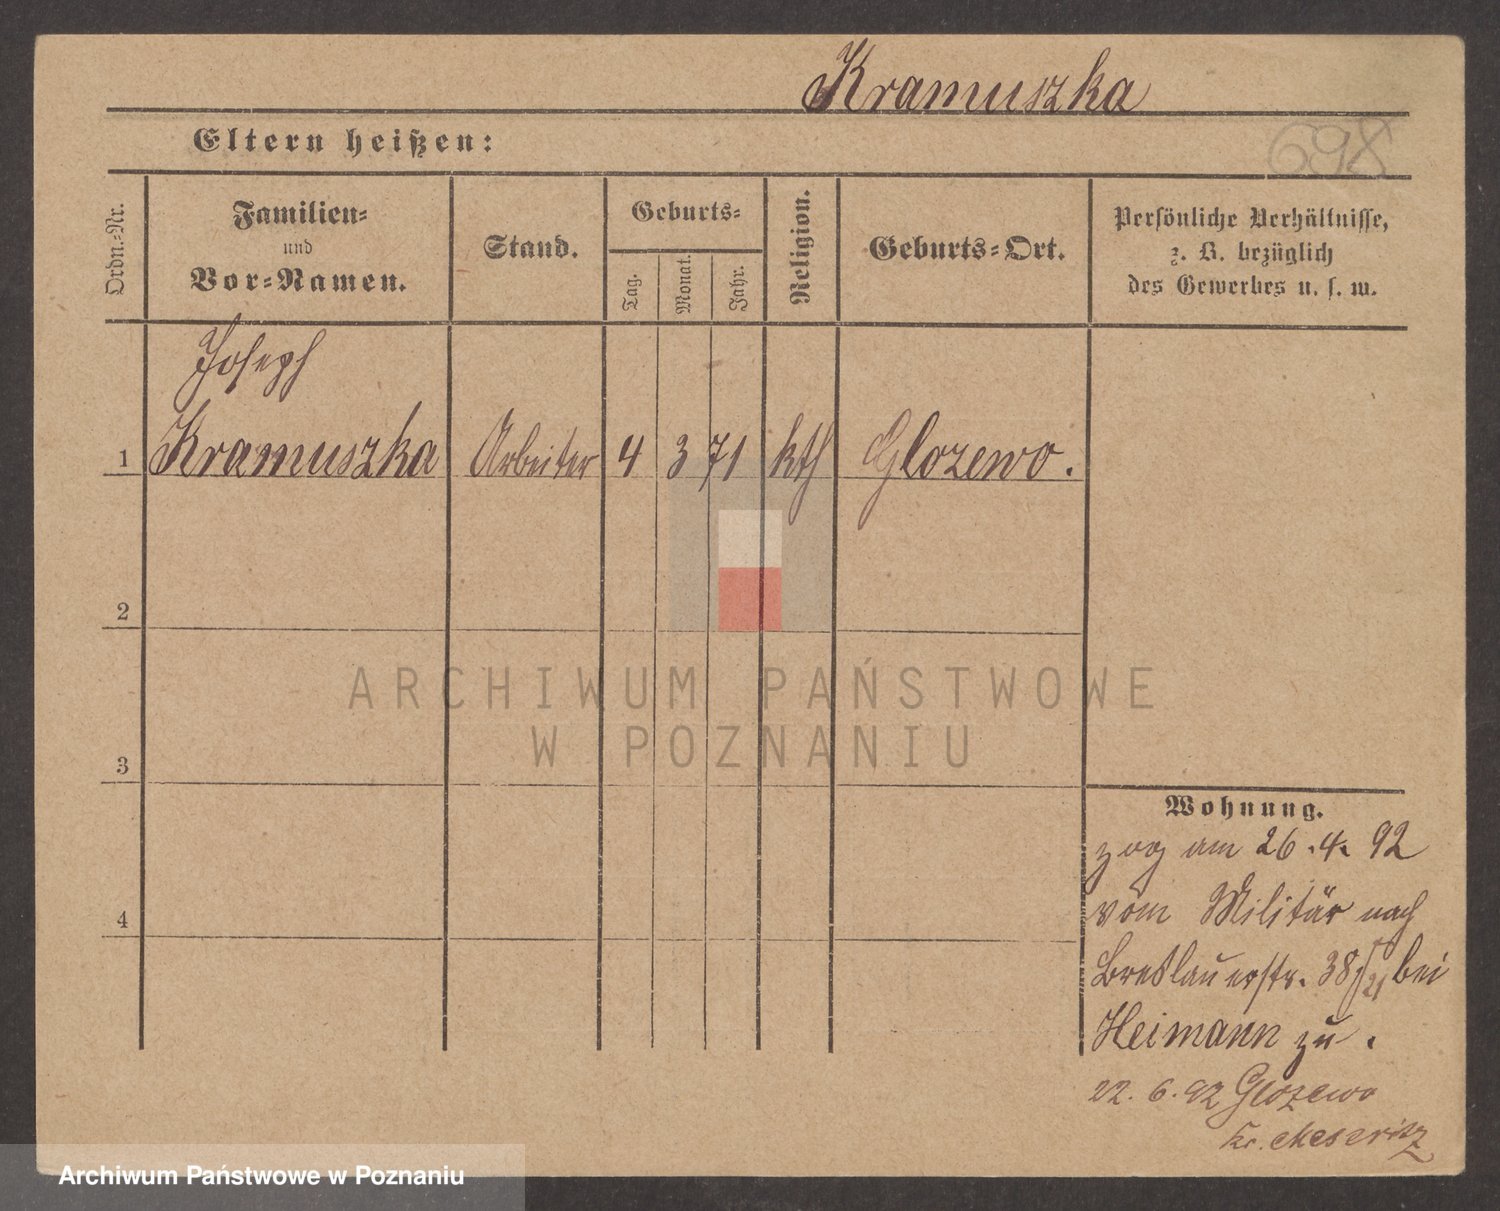 Kramuszka
698
Eltern heißen:
Ordn.-Nr.
Familien-
und
Vor-Namen.
Stand.
Geburts-
Tag.
Monat.
Jahr.
Religion.
Geburts-Ort.
Persönliche Verhältnisse,
z. B. bezüglich
des Gewerbes u. s. w.
Joseph
1 Kramuszka Arbeiter 4 3 71 kth Glozewo.
2
ARCHIWUM PAŃSTWOWE
W POZNANIU
3
Wohnung.
zog am 26.4.92
vom Militär nach
4
Breslauerstr. 38 bei
Heimann zu.
22.6.92 Glozewo
Kr. Meseritz
Archiwum Państwowe w Poznaniu